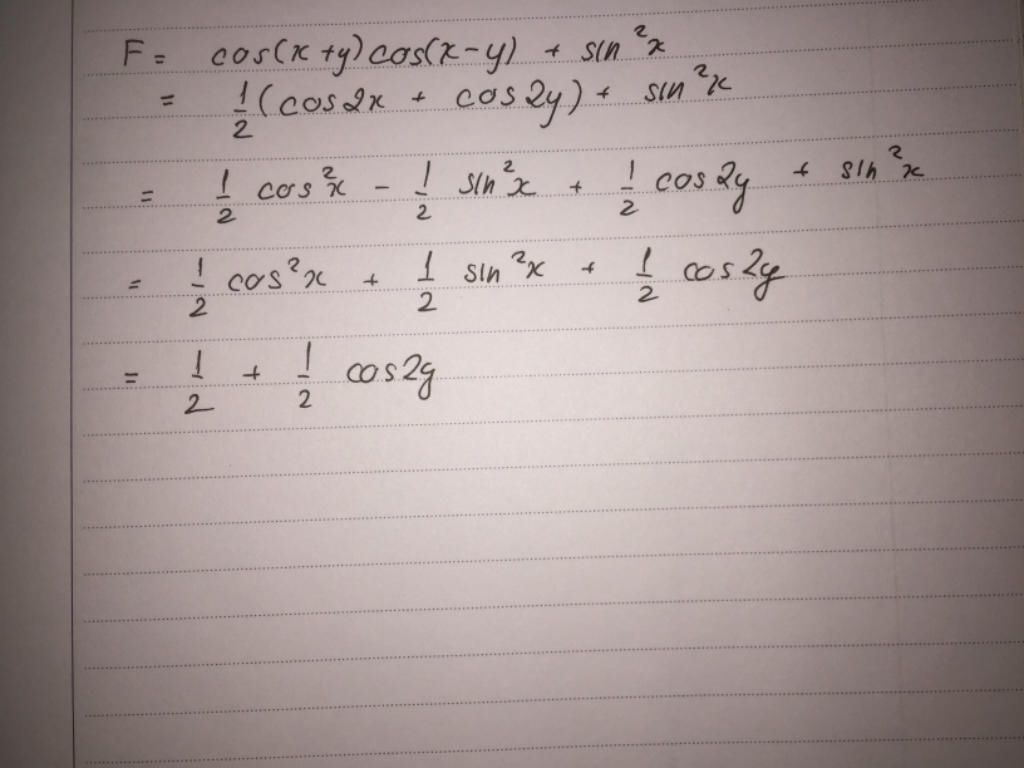 F = cos(x+y)cos(x-y) + sin²x
= 1/2 (cos2x + cos2y) + sin²x
= 1/2 cos²x - 1/2 sin²x + 1/2 cos2y + sin²x
= 1/2 cos²x + 1/2 sin²x + 1/2 cos2y
= 1/2 + 1/2 cos2y